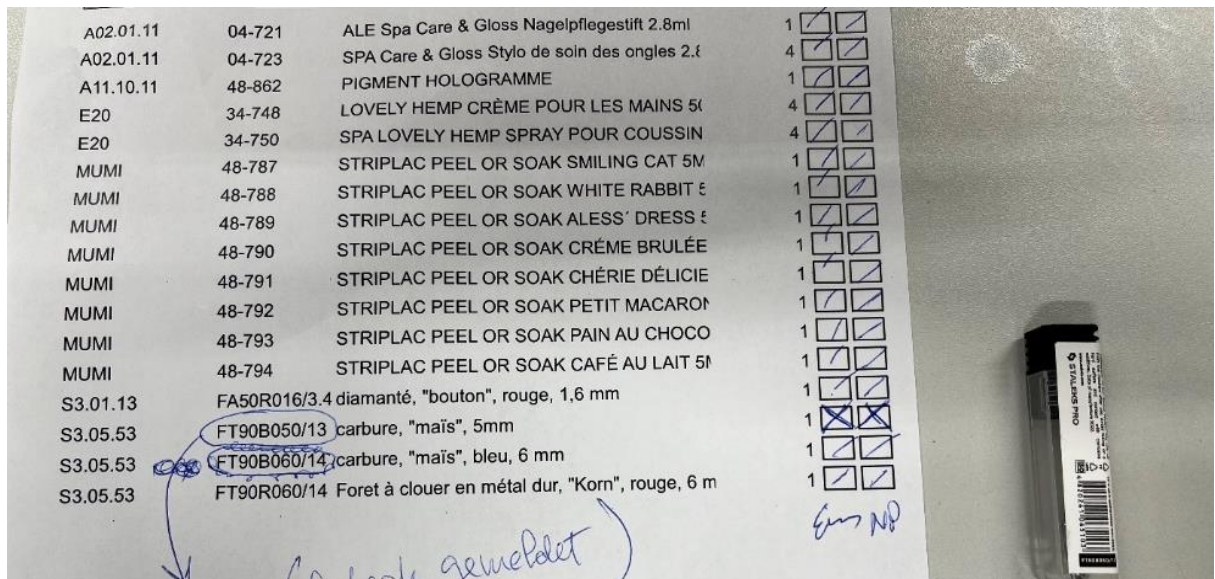 A02.01.11 04-721 ALE Spa Care & Gloss Nagelpflegestift 2.8ml 1
A02.01.11 04-723 SPA Care & Gloss Stylo de soin des ongles 2.8 4
A11.10.11 48-862 PIGMENT HOLOGRAMME 1
E20 34-748 LOVELY HEMP CRÈME POUR LES MAINS 50 4
E20 34-750 SPA LOVELY HEMP SPRAY POUR COUSSIN 4
MUMI 48-787 STRIPLAC PEEL OR SOAK SMILING CAT 5M 1
MUMI 48-788 STRIPLAC PEEL OR SOAK WHITE RABBIT 5 1
MUMI 48-789 STRIPLAC PEEL OR SOAK ALESS´ DRESS 5 1
MUMI 48-790 STRIPLAC PEEL OR SOAK CRÉME BRULÉE 1
MUMI 48-791 STRIPLAC PEEL OR SOAK CHÉRIE DÉLICIE 1
MUMI 48-792 STRIPLAC PEEL OR SOAK PETIT MACARON 1
MUMI 48-793 STRIPLAC PEEL OR SOAK PAIN AU CHOCO 1
MUMI 48-794 STRIPLAC PEEL OR SOAK CAFÉ AU LAIT 5M 1
S3.01.13 FA50R016/3.4 diamanté, "bouton", rouge, 1,6 mm 1
S3.05.53 FT90B050/13 carbure, "maïs", 5mm 1
S3.05.53 FT90B060/14 carbure, "maïs", bleu, 6 mm 1
S3.05.53 FT90R060/14 Foret à clouer en métal dur, "Korn", rouge, 6 m 1
gemeldet)
STALEKS PRO